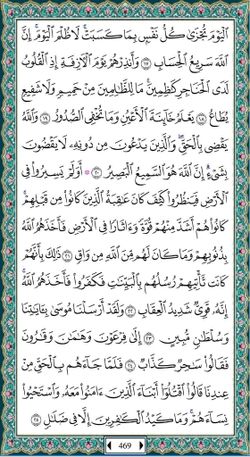 ٱلۡيَوۡمَ تُجۡزَىٰ كُلُّ نَفۡسِۭ بِمَا كَسَبَتۡۚ لَا ظُلۡمَ ٱلۡيَوۡمَۚ إِنَّ
ٱللَّهَ سَرِيعُ ٱلۡحِسَابِ ١٧ وَأَنذِرۡهُمۡ يَوۡمَ ٱلۡأٓزِفَةِ إِذِ ٱلۡقُلُوبُ
لَدَى ٱلۡحَنَاجِرِ كَٰظِمِينَۚ مَا لِلظَّٰلِمِينَ مِنۡ حَمِيمٖ وَلَا شَفِيعٖ
يُطَاعُ ١٨ يَعۡلَمُ خَآئِنَةَ ٱلۡأَعۡيُنِ وَمَا تُخۡفِي ٱلصُّدُورُ ١٩ وَٱللَّهُ
يَقۡضِي بِٱلۡحَقِّۖ وَٱلَّذِينَ يَدۡعُونَ مِن دُونِهِۦ لَا يَقۡضُونَ
بِشَيۡءٍۗ إِنَّ ٱللَّهَ هُوَ ٱلسَّمِيعُ ٱلۡبَصِيرُ ٢٠ ۞ أَوَلَمۡ يَسِيرُواْ فِي
ٱلۡأَرۡضِ فَيَنظُرُواْ كَيۡفَ كَانَ عَٰقِبَةُ ٱلَّذِينَ كَانُواْ مِن قَبۡلِهِمۡۚ
كَانُواْ هُمۡ أَشَدَّ مِنۡهُمۡ قُوَّةٗ وَءَاثَارٗا فِي ٱلۡأَرۡضِ فَأَخَذَهُمُ ٱللَّهُ
بِذُنُوبِهِمۡ وَمَا كَانَ لَهُم مِّنَ ٱللَّهِ مِن وَاقٖ ٢١ ذَٰلِكَ بِأَنَّهُمۡ
كَانَت تَّأۡتِيهِمۡ رُسُلُهُم بِٱلۡبَيِّنَٰتِ فَكَفَرُواْ فَأَخَذَهُمُ ٱللَّهُۚ
إِنَّهُۥ قَوِيّٞ شَدِيدُ ٱلۡعِقَابِ ٢٢ وَلَقَدۡ أَرۡسَلۡنَا مُوسَىٰ بِـَٔايَٰتِنَا
وَسُلۡطَٰنٖ مُّبِينٍ ٢٣ إِلَىٰ فِرۡعَوۡنَ وَهَٰمَٰنَ وَقَٰرُونَ
فَقَالُواْ سَٰحِرٞ كَذَّابٞ ٢٤ فَلَمَّا جَآءَهُم بِٱلۡحَقِّ مِنۡ
عِندِنَا قَالُواْ ٱقۡتُلُوٓاْ أَبۡنَآءَ ٱلَّذِينَ ءَامَنُواْ مَعَهُۥ وَٱسۡتَحۡيُواْ
نِسَآءَهُمۡۚ وَمَا كَيۡدُ ٱلۡكَٰفِرِينَ إِلَّا فِي ضَلَٰلٖ ٢٥
469